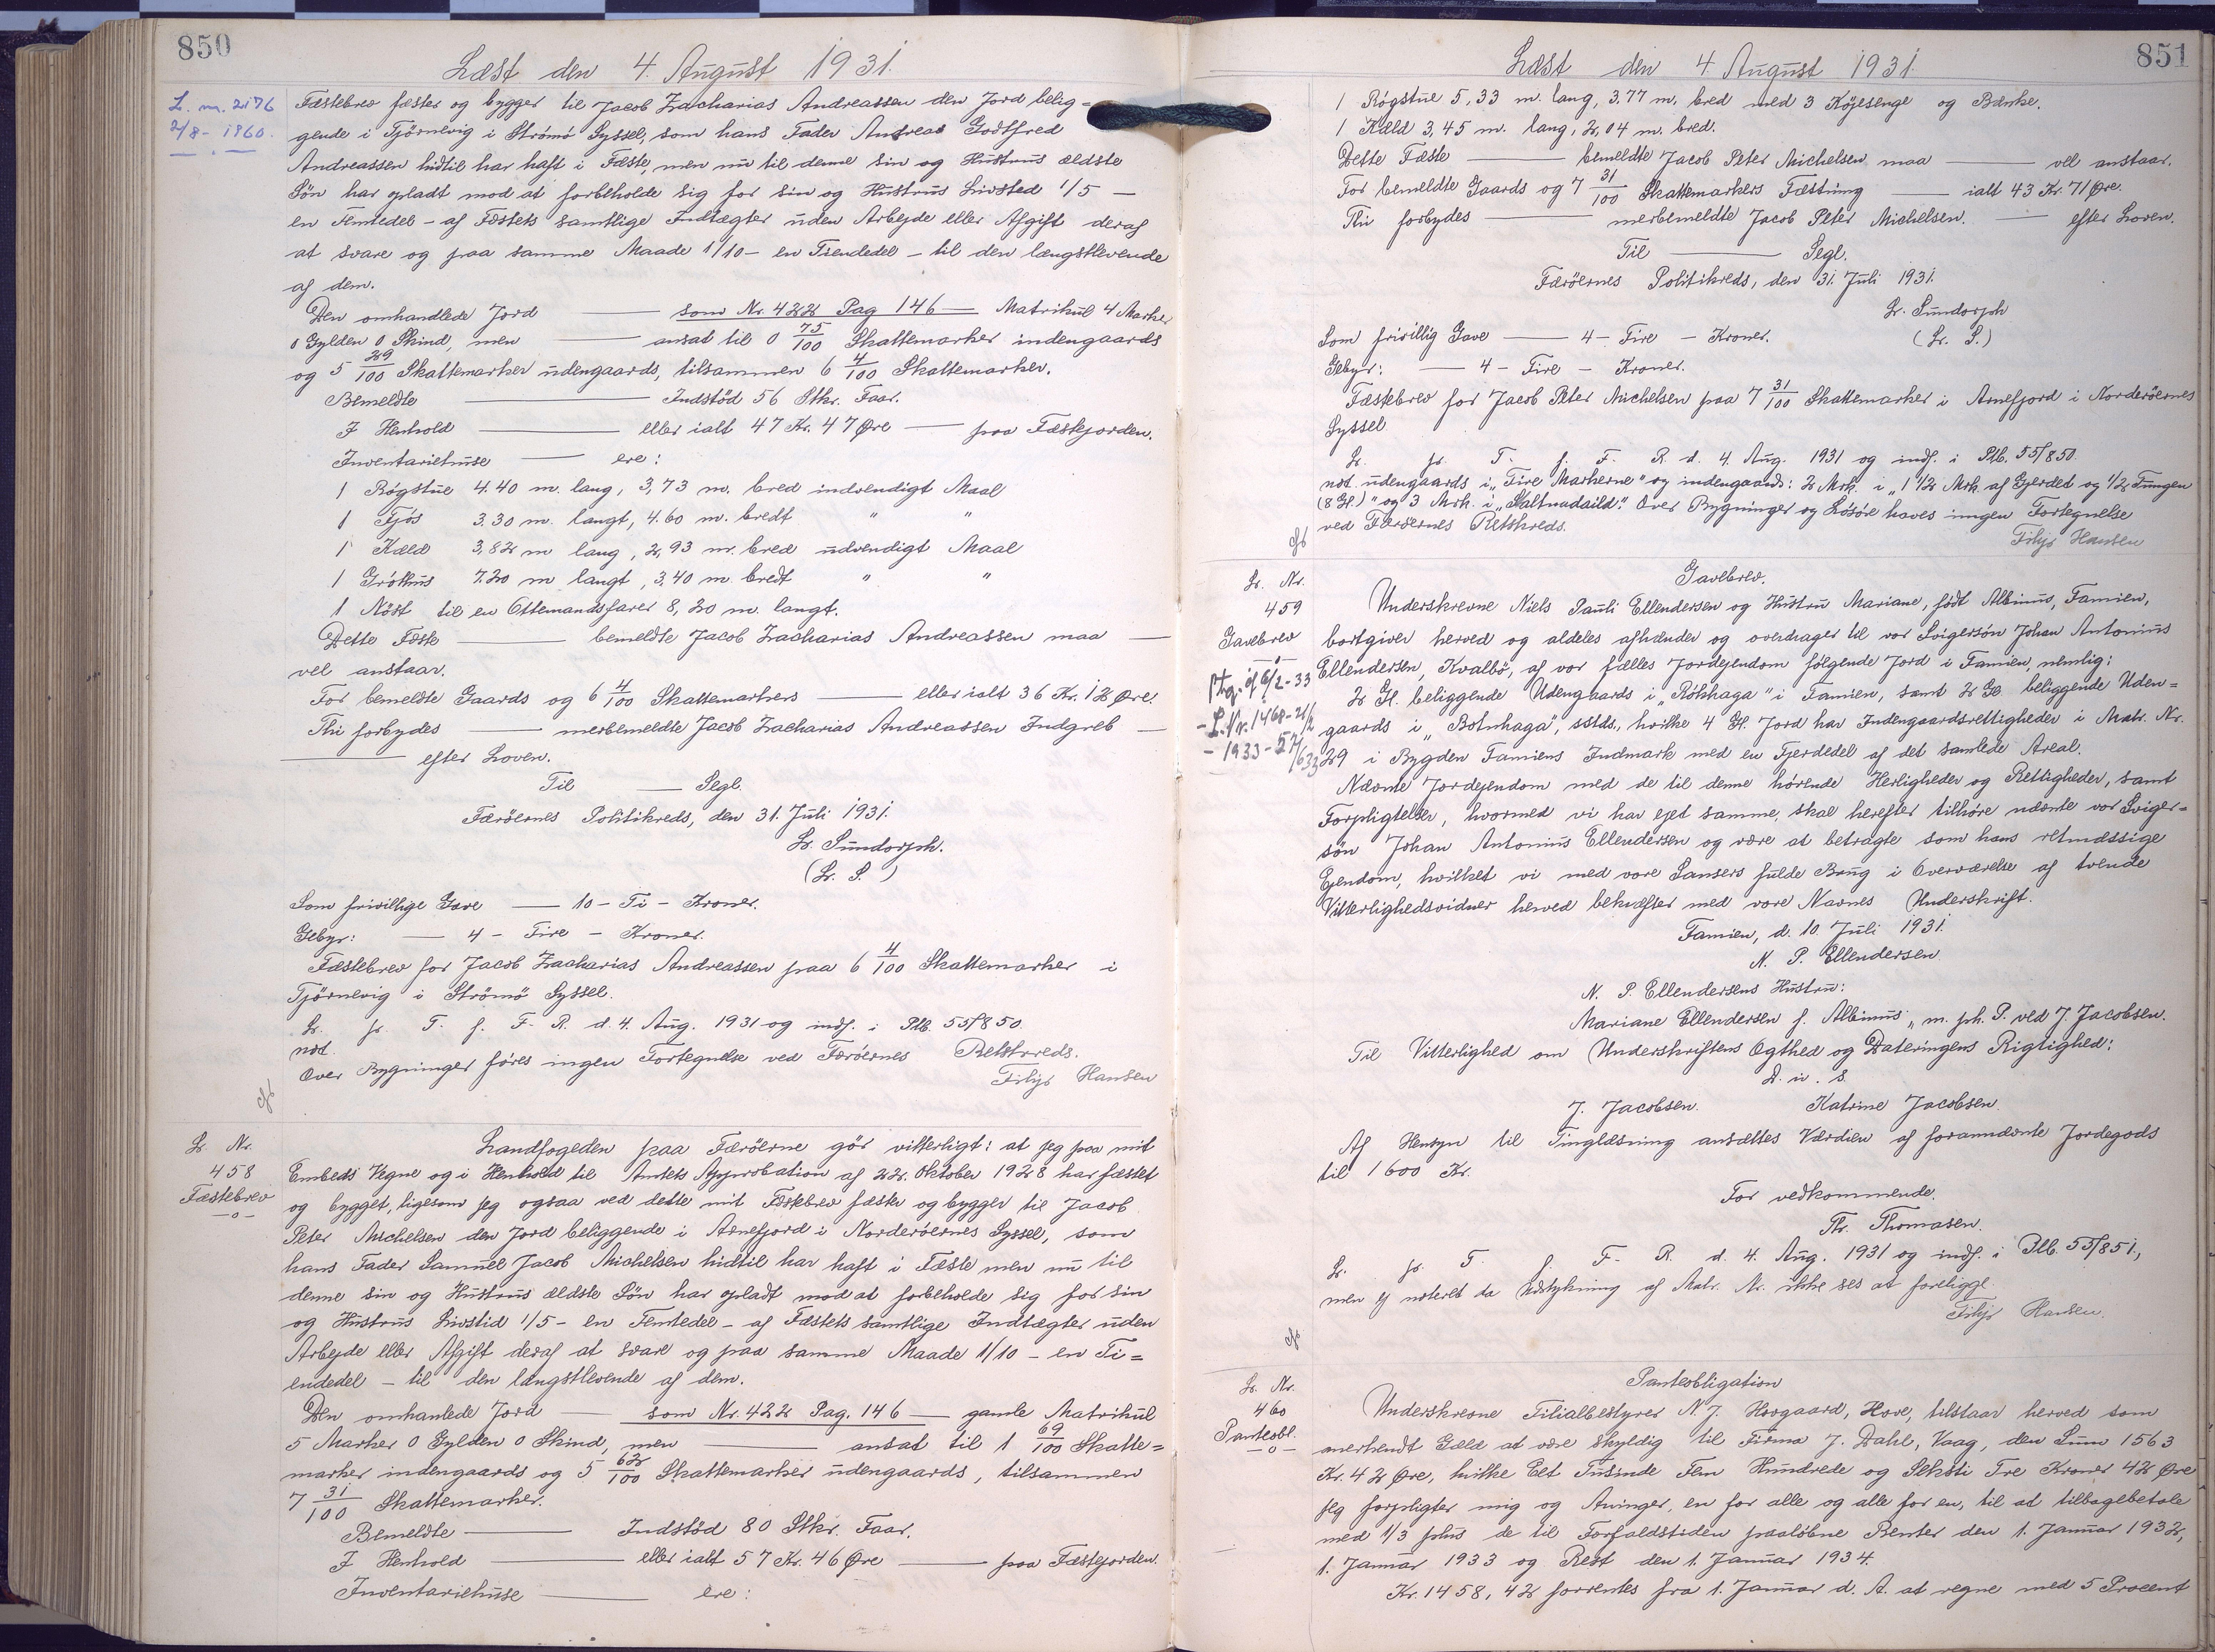 850
Læst den 4. August 1931.
L. nr. 2176
2/8 - 1960.
Fæstebrev fæster og bygger til Jacob Zacharias Andreassen den Jord belig=
gende i Tjörnevig i Strömö Syssel, som hans Fader Andreas Godtfred
Andreassen hidtil har haft i Fæste, men nu til denne sin og Hustrus ældste
Sön har opladt mod at forbeholde sig for sin og Hustrus Livsted 1/5 —
en Femtedel - af Fæstets samtlige Indtægter uden Arbejde eller Afgift deraf
at svare og paa samme Maade 1/10 - en Tiendedel - til den længstlevende
af dem.
Den omhandlede Jord — som Nr. 422 Pag 146 — Matrikul 4 Marker
0 Gylden 0 Skind, men — ansat til 0 75/100 Skattemarker indengaards
og 5 29/100 Skattemarker udengaards, tilsammen 6 4/100 Skattemarker.
Bemeldte — Indstöd 56 Stkr. Faar.
I Henhold — eller ialt 47 Kr. 47 Øre — paa Fæstejorden.
Inventariehuse — ere:
1 Rögstue 4.40 m. lang, 3,73 m. bred indvendigt Maal
1 Fjós 3.30 m. langt, 4.60 m. bredt " "
1 Kæld 3,82 m lang, 2,93 m. bred udvendigt Maal
1 Gróthus 7.20 m langt, 3.40 m. bredt " "
1 Nöst til en Ottemandsfarer 8,20 m. langt.
Dette Fæste — bemeldte Jacob Zacharias Andreassen maa —
vel anstaar.
For bemeldte Gaards og 6 4/100 Skattemarkers — eller ialt 36 Kr. 12 Øre.
Thi forbydes — merbemeldte Jacob Zacharias Andreassen Indgreb —
— efter Loven.
Til — Segl.
Færöernes Politikreds, den 31. Juli 1931.
Lr. Sundorph.
(Lr. S.)
Som frivillige Gave — 10 - Ti - Kroner.
Gebyr: — 4 - Fire - Kroner.
Fæstebrev for Jacob Zacharias Andreassen paa 6 4/100 Skattemarker i
Tjörnevig i Strömö Syssel.
L. p. T. f. F. R. d. 4. Aug. 1931 og indf. i Ptb. 55/850.
not.
Over Bygninger föres ingen Fortegnelse ved Færöernes Retskreds.
Filip Hansen
L. Nr.
458
Fæstebrev
-o-
Landfogeden paa Færöerne gör vitterligt: at jeg paa mit
Embeds Vegne og i Henhold til Amtets Approbation af 22. Oktober 1928 har fæstet
og bygget, ligesom jeg ogsaa ved dette mit Fæstebrev fæster og bygger til Jacob
Peter Michelsen den Jord beliggende i Arnefjord i Norderöernes Syssel, som
hans Fader Samuel Jacob Michelsen hidtil har haft i Fæste men nu til
denne sin og Hustrus ældste Sön har opladt mod at forbeholde sig for sin
og Hustrus Livstid 1/5 - en Femtedel - af Fæstets samtlige Indtægter uden
Arbejde eller Afgift deraf at svare og paa samme Maade 1/10 - en Ti=
endedel - til den længstlevende af dem.
Den omhanlede Jord — som Nr. 422 Pag. 146 — gamle Matrikul
5 Marker 0 Gylden 0 Skind, men — ansat til 1 69/100 Skatte=
marker indengaards og 5 62/100 Skattemarker udengaards, tilsammen
7 31/100 Skattemarker.
Bemeldte — Indstöd 80 Stkr. Faar.
I Henhold — eller ialt 57 Kr. 46 Øre — paa Fæstejorden.
Inventariehuse — ere:
851
Læst den 4. August 1931.
1 Rögstue 5,33 m. lang, 3.77 m. bred med 3 Köjesenge og Bænke.
1 Kæld 3,45 m. lang, 2,04 m. bred.
Dette Fæste — bemeldte Jacob Peter Michelsen maa — vel anstaar.
For bemeldte Gaards og 7 31/100 Skattemarkers Fæstning — ialt 43 Kr. 71 Øre.
Thi forbydes — merbemeldte Jacob Peter Michelsen. — efter Loven.
Til — Segl.
Færöernes Politikreds, den 31. Juli 1931.
Lr. Sundorph
(Lr. S.)
Som frivillig Gave — 4 - Fire - Kroner.
Gebyr: — 4 - Fire - Kroner.
Fæstebrev for Jacob Peter Michelsen paa 7 31/100 Skattemarker i Arnefjord i Norderöernes
Syssel
L. p. T. f. F. R. d. 4. Aug. 1931 og indf. i Ptb. 55/850.
not. udengaards i "Fire Markerne" og indengaards: 2 Mrk. i "1 1/2 Mrk. af Gjerdet og 1/2 Tungen
(8 Gl.)" og 3 Mrk. i "Saltnadaild". Over Bygninger og Lösöre haves ingen Fortegnelse
ved Færöernes Retskreds.
Filip Hansen
L. Nr.
459
Gavebrev
-o-
L. Nr. 1468-21/2
- 1933 - 57/633
Gavebrev.
Underskrevne Niels Pauli Ellendersen og Hustru Mariane, födt Albinus, Famien,
bortgiver herved og aldeles afhænder og overdrager til vor Svigersön Johan Antonius
Ellendersen, Kvalbö, af vor fælles Jordejendom fölgende Jord i Famien, nemlig:
2 Gl. beliggende Udengaards i "Rókhaga" i Famien, samt 2 Gl. beliggende Uden=
gaards i "Botnhaga", sstds., hvilke 4 Gl. Jord har Indengaardsrettigheder i Matr. Nr.
29 i Bygden Famiens Indmark med en Fjerdedel af det samlede Areal.
Nævnte Jordejendom med de til denne hörende Herligheder og Rettigheder, samt
Forpligtelser, hvormed vi har ejet samme, skal herefter tilhöre nævnte vor Sviger=
sön Johan Antonius Ellendersen og være at betragte som hans retmæssige
Ejendom, hvilket vi med vore Sansers fulde Brug i Overværelse af tvende
Vitterlighedsvidner herved bekræfter med vore Navnes Underskrift.
Famien, d. 10. Juli 1931.
N. P. Ellendersen
N. P. Ellendersens Hustru:
Mariane Ellendersen f. Albinus, m. ph. P. ved J. Jacobsen.
Til Vitterlighed om Underskriftens Ægthed og Dateringens Rigtighed:
D. u. S.
J. Jacobsen. Katrine Jacobsen
Af Hensyn til Tinglæsning ansættes Værdien af forannævnte Jordegods
til 1600 Kr.
For vedkommende.
Th. Thomasen.
L. p. T. f. F. R. d. 4. Aug. 1931 og indf. i Ptb. 55/851,
men ej noteret da Udstykning af Matr. Nr. ikke ses at foreligge.
Filip Hansen.
L. Nr.
460
Panteobl.
-o-
Panteobligation
Underskrevne Filialbestyrer N. J. Hovgaard, Hove, tilstaar herved som
anerkendt Gæld at være skyldig til Firma J. Dahl, Vaag, den Sum 1563
Kr. 42 Øre, hvilke Eet Tusinde Fem Hundrede og Seksti Tre Kroner 42 Øre
jeg forpligter mig og Arvinger, en for alle og alle for en, til at tilbagebetale
med 1/3 plus de til Forfaldstiden paalöbne Renter den 1. Januar 1932,
1. Januar 1933 og Rest den 1. Januar 1934.
Kr. 1458,42 forrentes fra 1. Januar d. A. at regne med 5 Procent